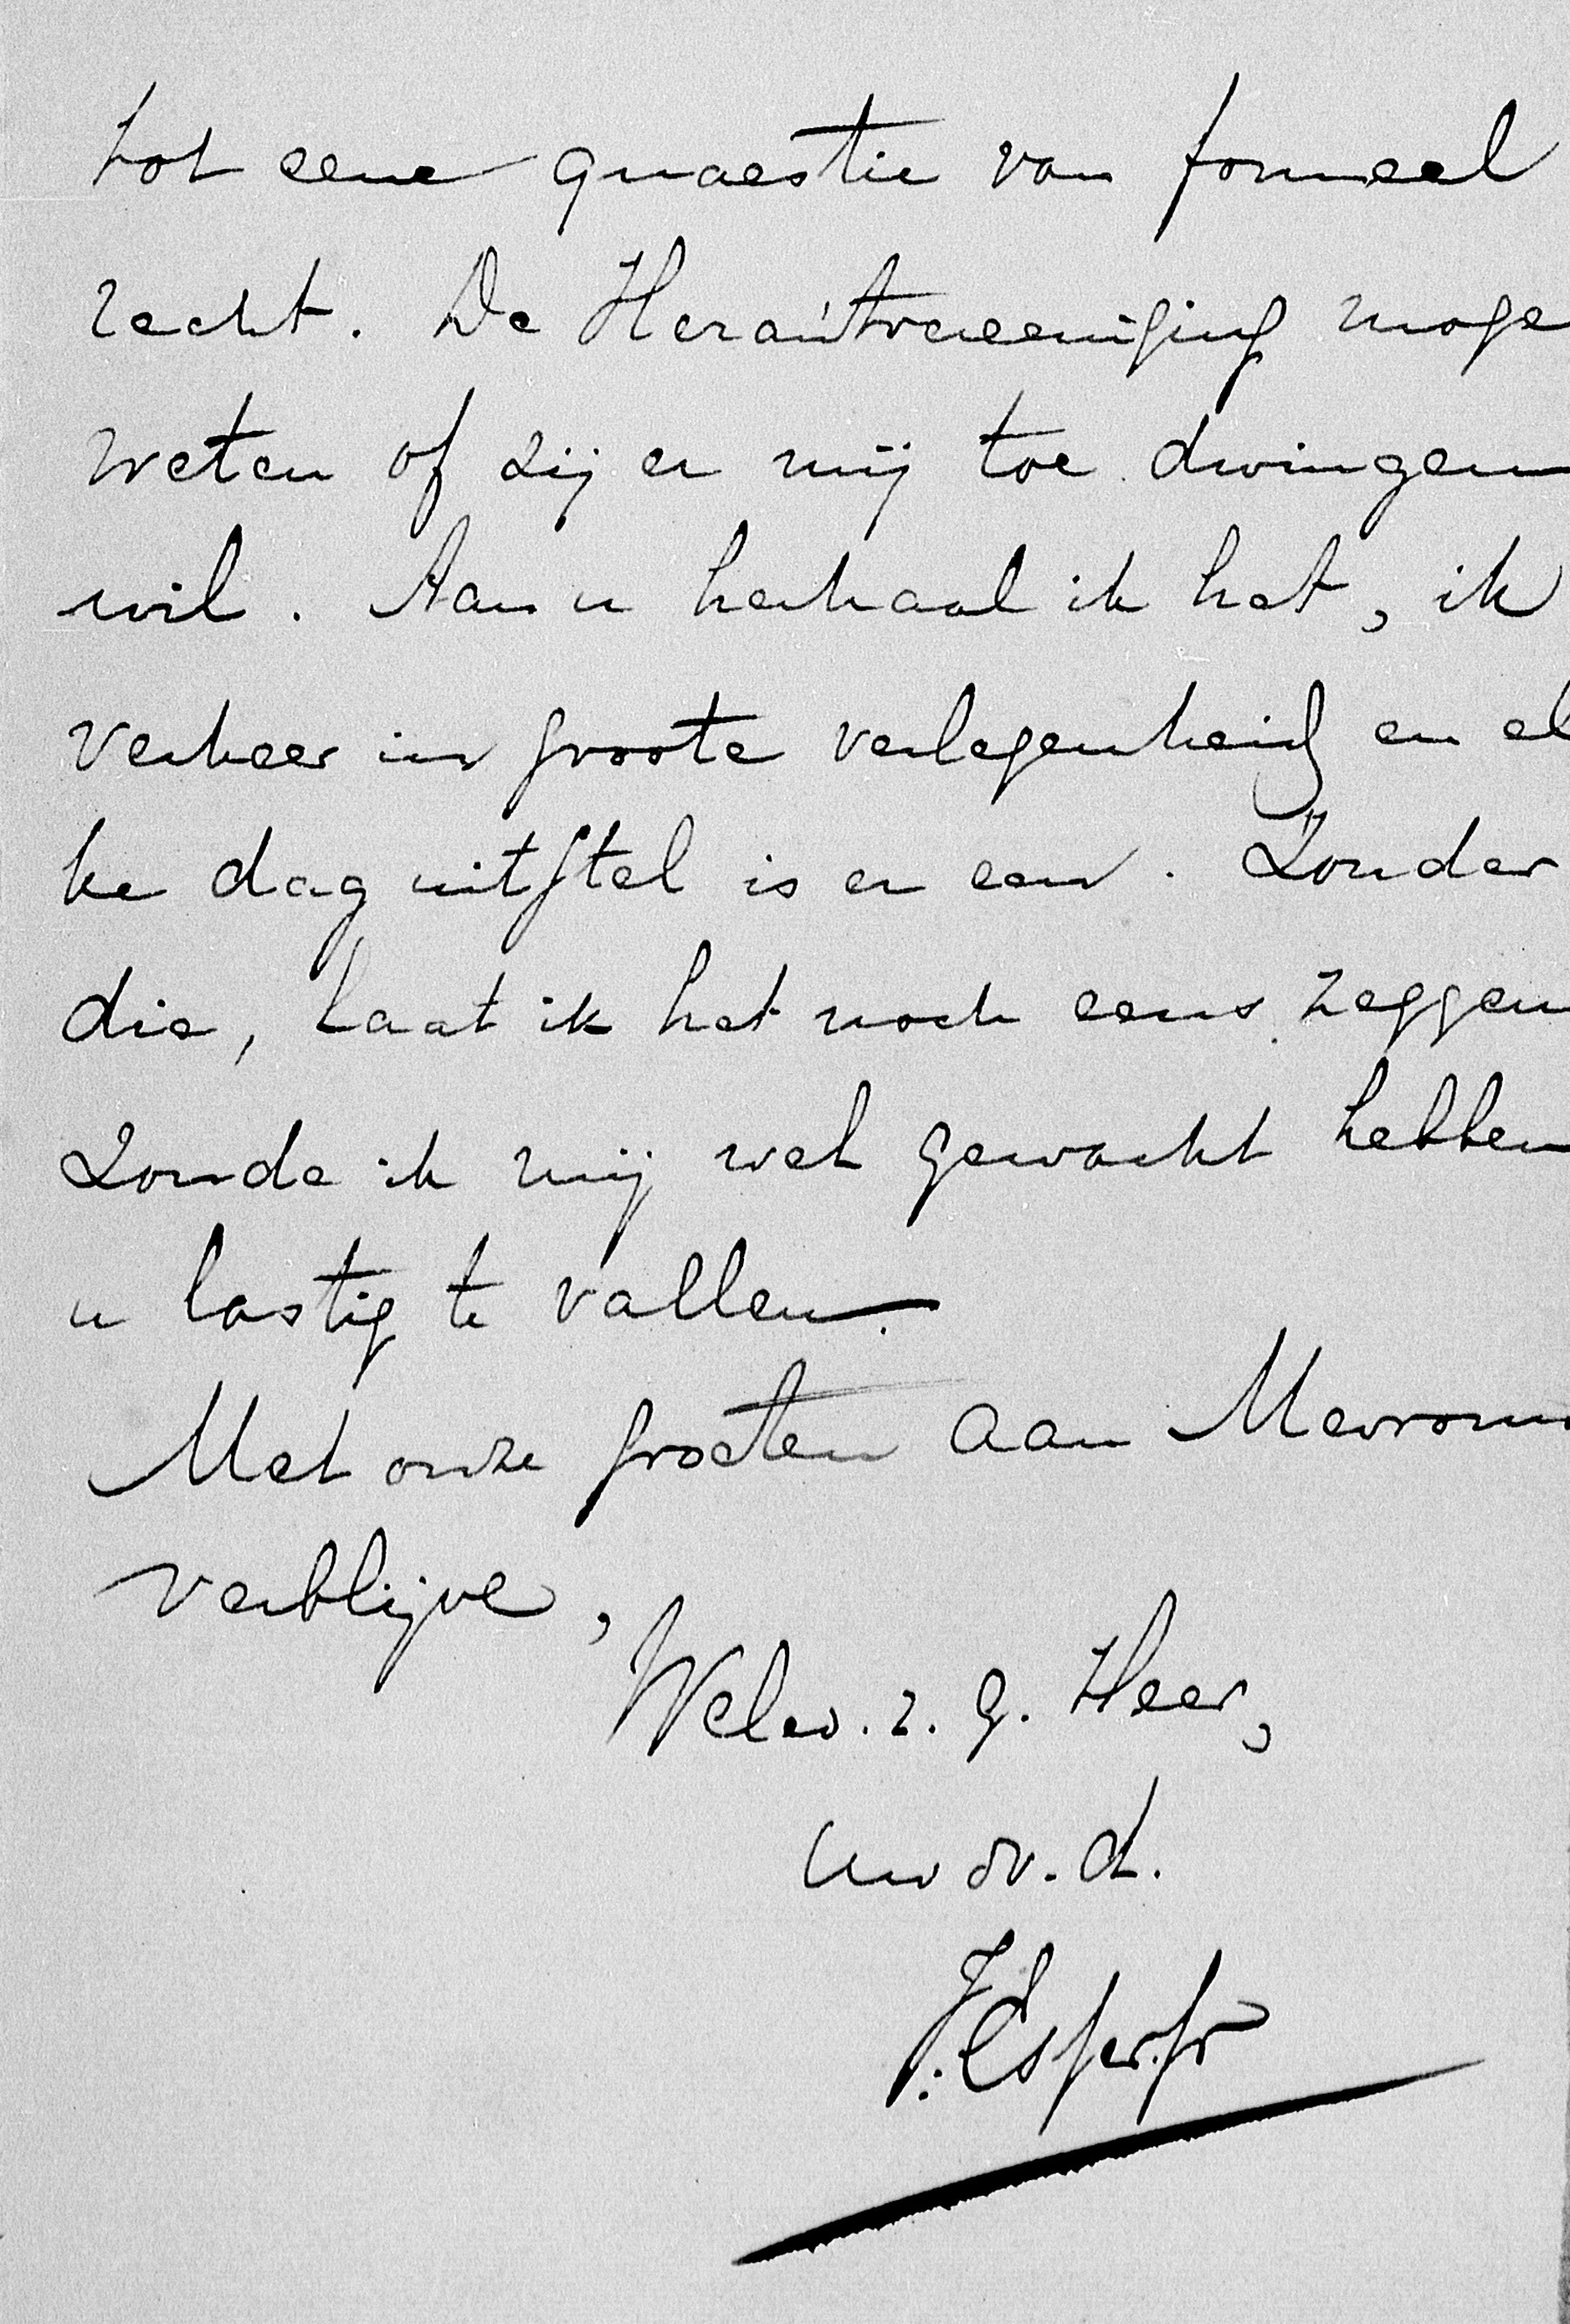 tot eene quaestie van formeel
recht. De Herautvereeniging moge
weten of zij er mij toe dwingen
wil. Aan u herhaal ik het, ik
verkeer in groote verlegenheid en el
ke dag uitstel is er een. Zonder
die, laat ik het noch eens zeggen
zoude ik mij wel gewacht hebben
u lastig te vallen.
Met onze groeten aan Mevrouw
verblijve,
Welew. z. g. Heer,
Uw dv. d.
J. Esser Jr